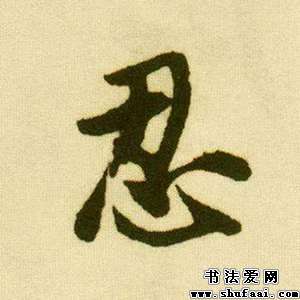 忍
书法爱网
www.shufaai.com